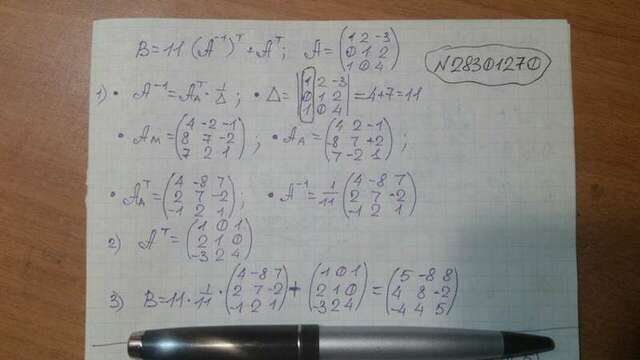 B=11(A⁻¹)ᵀ+Aᵀ; A=(1 2 -3
0 1 2
1 0 4)
N28301270
1) • A⁻¹=A_Aᵀ·1/Δ; • Δ=|1 2 -3
0 1 2
1 0 4|=4+7=11
• A_M=(4 -2 -1
8 7 -2
7 2 1); • A_A=(4 2 -1
-8 7 +2
7 -2 1);
• A_Aᵀ=(4 -8 7
2 7 -2
-1 2 1); • A⁻¹=1/11(4 -8 7
2 7 -2
-1 2 1)
2) Aᵀ=(1 0 1
2 1 0
-3 2 4)
3) B=11·1/11·(4 -8 7
2 7 -2
-1 2 1)+(1 0 1
2 1 0
-3 2 4)=(5 -8 8
4 8 -2
-4 4 5)